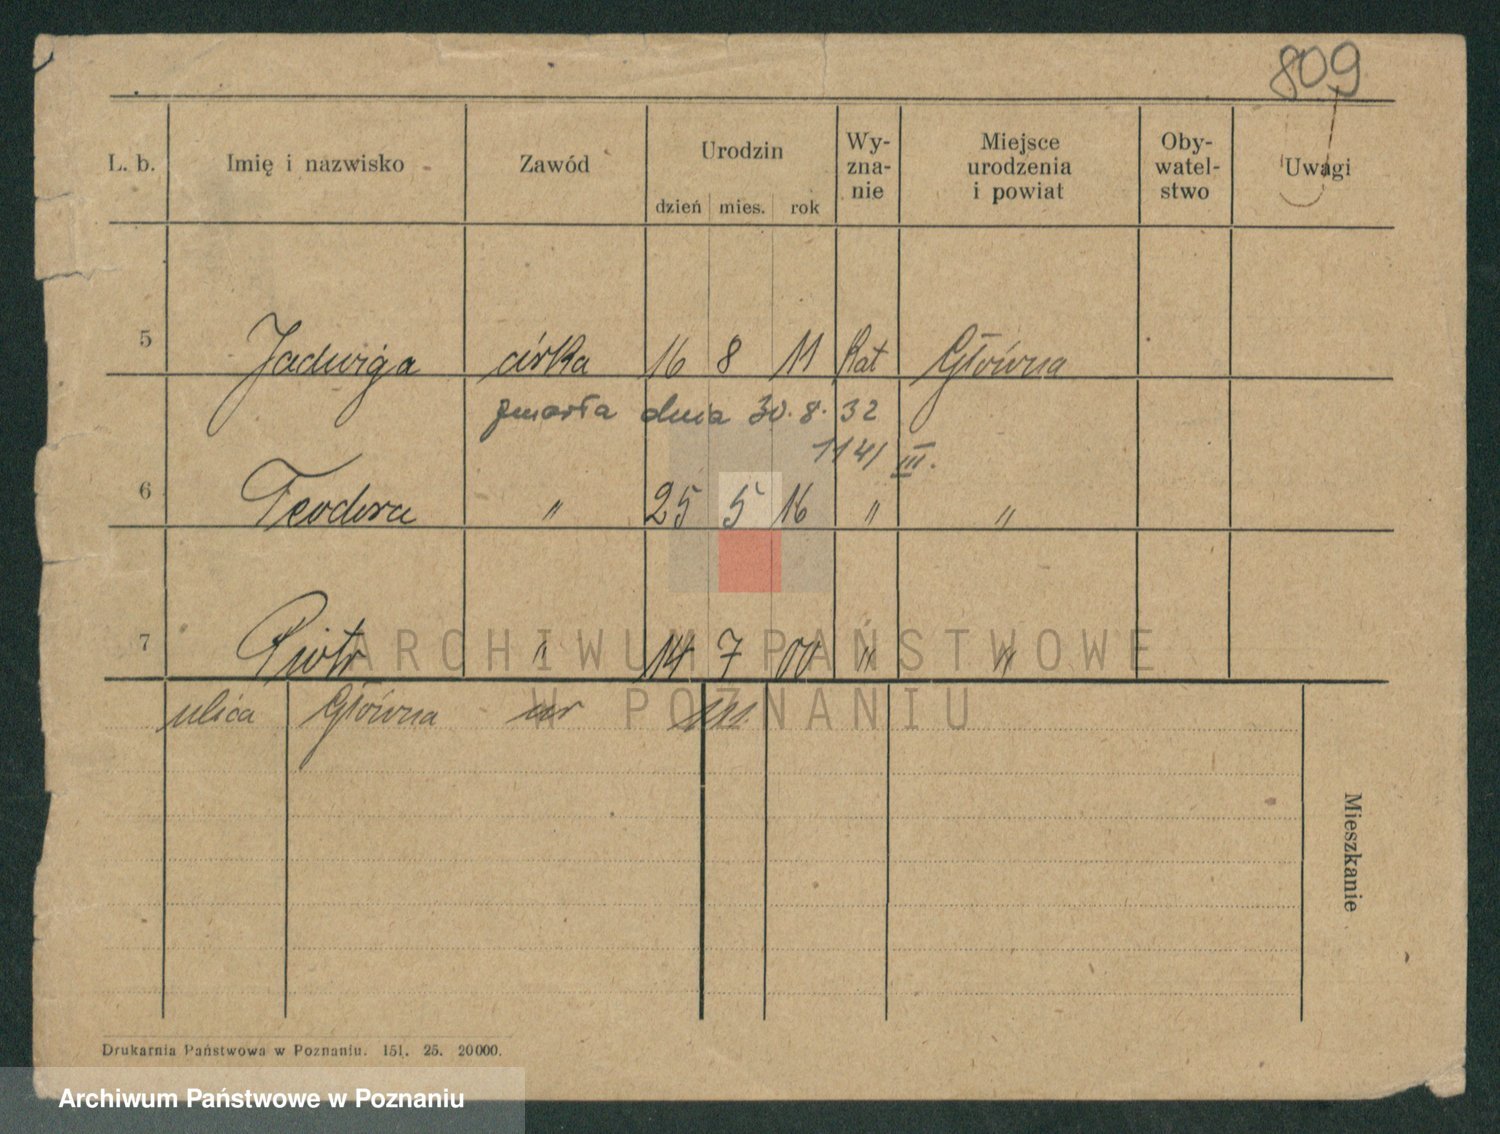 809
L. b. Imię i nazwisko Zawód Urodzin dzień mies. rok Wy-zna-nie Miejsce urodzenia i powiat Oby-watel-stwo Uwagi
5 Jadwiga córka 16 8 11 Kat Główna
zmarła dnia 30. 8. 32
1141 III.
6 Teodora " 25 5 16 " "
7 Piotr " 14 7 00 " "
ARCHIWUM PAŃSTWOWE
W POZNANIU
ulica Główna nr 111.
Mieszkanie
Drukarnia Państwowa w Poznaniu. 151. 25. 20000.
Archiwum Państwowe w Poznaniu